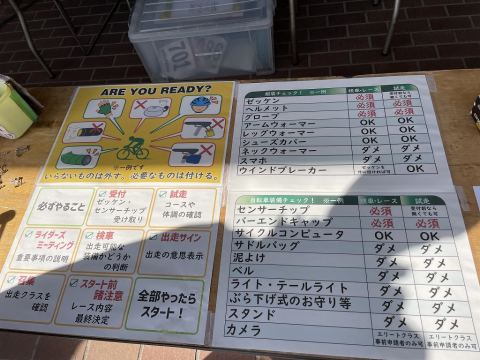 701
ARE YOU READY?
※一例です
いらないものは外す、必要なものは付ける。
服装チェック！ ※一例
検車・レース
試走
ゼッケン
必須
ヘルメット
必須
必須
グローブ
必須
必須
アームウォーマー
OK
OK
レッグウォーマー
OK
OK
シューズカバー
OK
OK
ネックウォーマー
ダメ
ダメ
スマホ
ダメ
ダメ
ウインドブレーカー
OK
必ずやること
受付
ゼッケン・
センサーチップ
受け取り
試走
コースや
体調の確認
ライダーズ
ミーティング
重要事項の説明
検車
出走可能な
装備かどうか
の判断
出走サイン
出走の意思表示
召集
出走クラスを
確認
スタート前
諸注意
レース内容
最終決定
全部やったら
スタート！
自転車装備チェック！ ※一例
検車・レース
試走
センサーチップ
必須
受付前なら
無くても可
バーエンドキャップ
必須
必須
サイクルコンピュータ
OK
OK
サドルバッグ
ダメ
ダメ
泥よけ
ダメ
ダメ
ベル
ダメ
ダメ
ライト・テールライト
ダメ
ダメ
ぶら下げ式のお守り等
ダメ
ダメ
スタンド
ダメ
ダメ
カメラ
エリートクラス
事前申請者のみ可
エリートクラス
事前申請者のみ可